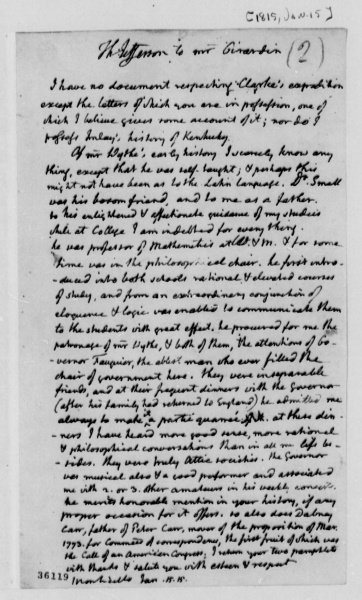 [1815, Jan. 15]
Th: Jefferson to mr Girardin (2)
I have no document respecting Clarke's expedition
except the letters of which you are in possession, one of
which I believe gives some account of it; nor do I
possess Imlay's history of Kentucky.
Of mr Wythe's early history I scarcely know any
thing, except that he was self-taught; & perhaps this
might not have been as to the Latin language. Dr. Small
was his bosom friend, and to me as a father.
to his enlightened & affectionate guidance of my studies
while at College I am indebted for every thing.
he was professor of Mathematics at W. & M. & for some
time was in the philosophical chair. he first intro-
duced into both schools rational & elevated courses
of study, and from an extraordinary conjunction of
eloquence & logic was enabled to communicate them
to the students with great effect. he procured for me the
patronage of mr Wythe, & both of them, the attentions of Go-
vernor Fauquier, the ablest man who ever filled the
chair of government here. they were inseparable
friends, and at their frequent dinners with the Governor
(after his family had returned to England) he admitted me
always to make it a partie quarrée. at these din-
ners I have heard more good sense, more rational
& philosophical conversations than in all my life be-
sides. they were truly Attic societies. the Governor
was musical also & a good performer and associated
me with 2. or 3. other amateurs in his weekly concerts.
he merits honorable mention in your history, if any
proper occasion for it offers. so also does Dabney
Carr, father of Peter Carr, mover of the proposition of Mar.
1773. for Commees of correspondence, the first fruit of which was
the Call of an American Congress; I return your two pamphlets
with thanks & salute you with esteem & respect
Monticello Jan. 15. 15.
36119